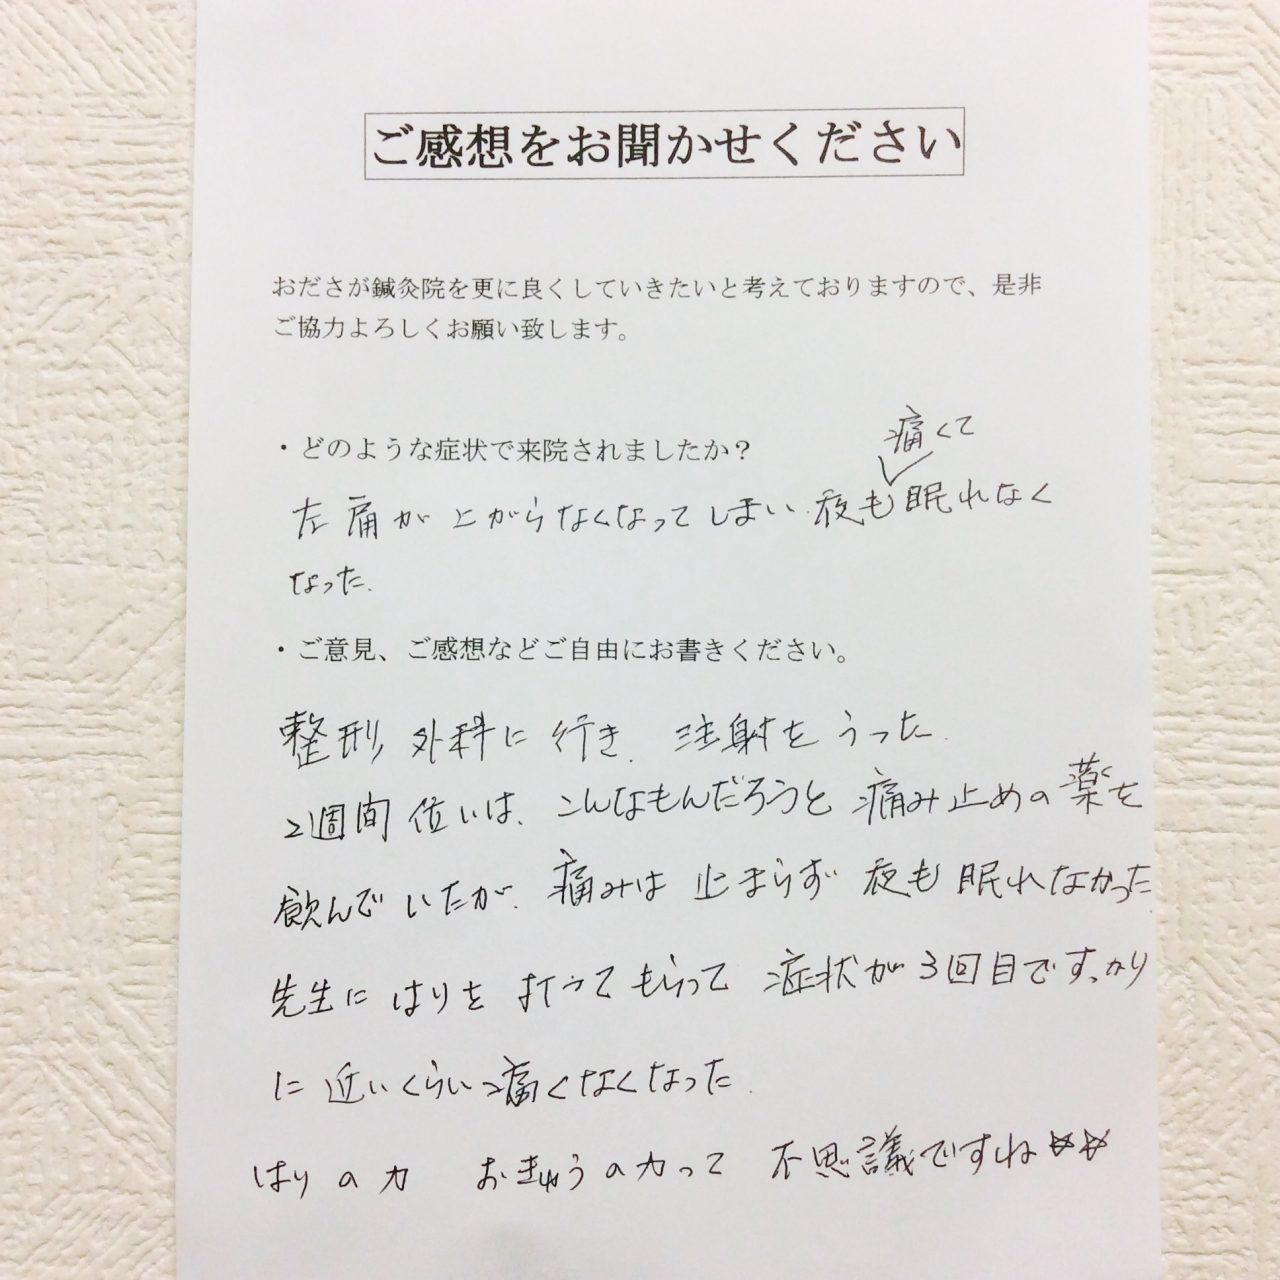 ご感想をお聞かせください
おださが鍼灸院を更に良くしていきたいと考えておりますので、是非
ご協力よろしくお願い致します。
・どのような症状で来院されましたか？
痛くて
左肩が上がらなくなってしまい夜も眠れなく
なった.
・ご意見、ご感想などご自由にお書きください。
整形外科に行き. 注射をうった.
2週間位いは、こんなもんだろうと痛み止めの薬を
飲んでいたが、痛みは止まらず夜も眠れなかった.
先生にはりを打ってもらって症状が3回目ですっかり
に近いくらい痛くなくなった.
はりの力 おきゅうの力って不思議ですね☆☆